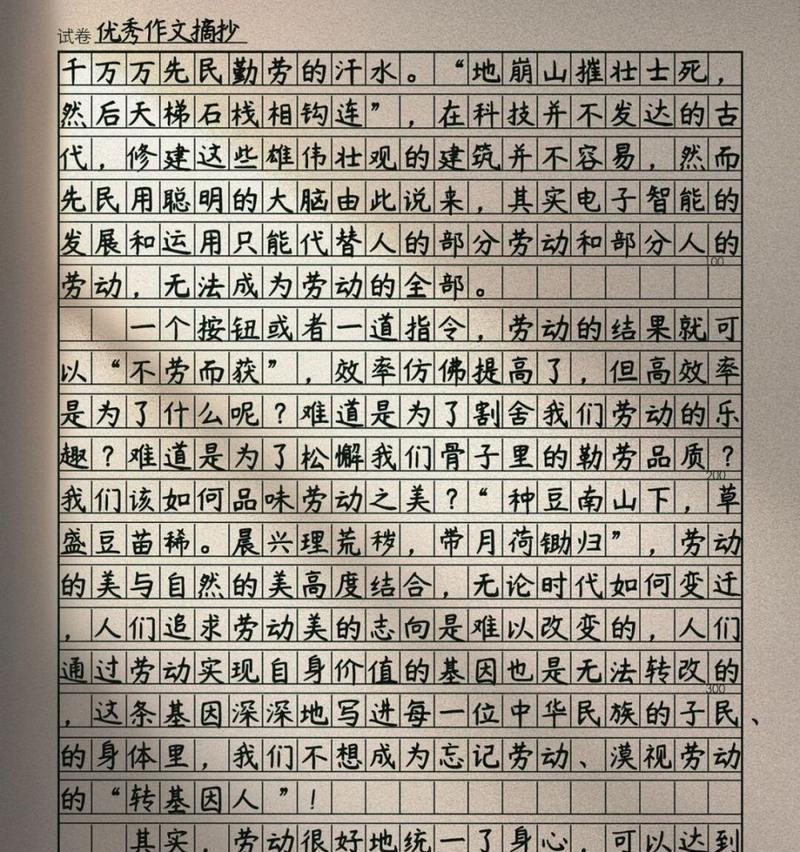 试卷 优秀作文摘抄
千万万先民勤劳的汗水。“地崩山摧壮士死，
然后天梯石栈相钩连”，在科技并不发达的古
代，修建这些雄伟壮观的建筑并不容易，然而
先民用聪明的大脑由此说来，其实电子智能的
发展和运用只能代替人的部分劳动和部分人的
100
劳动，无法成为劳动的全部。
一个按钮或者一道指令，劳动的结果就可
以“不劳而获”，效率仿佛提高了，但高效率
是为了什么呢？难道是为了割舍我们劳动的乐
趣？难道是为了松懈我们骨子里的勤劳品质？
200
我们该如何品味劳动之美？“种豆南山下，草
盛豆苗稀。晨兴理荒秽，带月荷锄归”，劳动
的美与自然的美高度结合，无论时代如何变迁
，人们追求劳动美的志向是难以改变的，人们
通过劳动实现自身价值的基因也是无法转改的
300
，这条基因深深地写进每一位中华民族的子民、
的身体里，我们不想成为忘记劳动、漠视劳动
的“转基因人”！
其实，劳动很好地统一了身心，可以达到